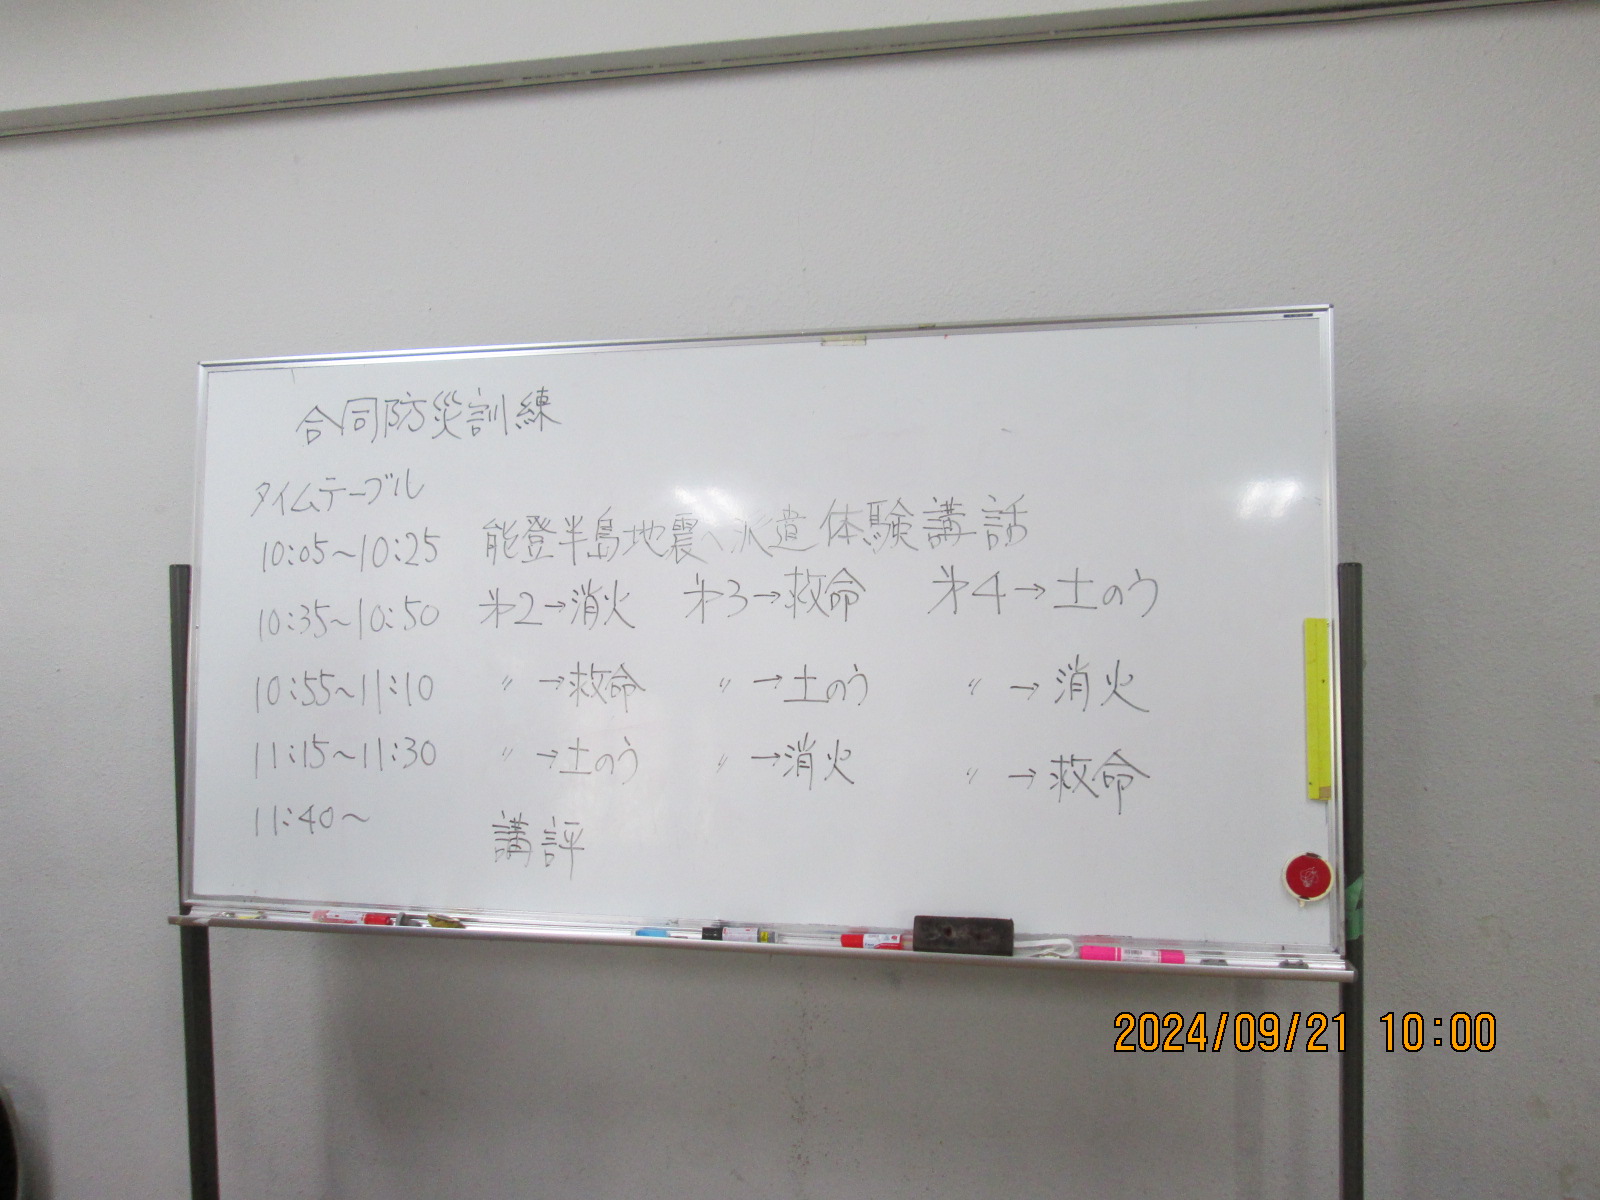 合同防災訓練
タイムテーブル
10:05～10:25 能登半島地震へ派遣体験講話
10:35～10:50 㐧2→消火 㐧3→救命 㐧4→土のう
10:55～11:10 〃→救命 〃→土のう 〃→消火
11:15～11:30 〃→土のう 〃→消火 〃→救命
11:40～ 講評
2024/09/21 10:00